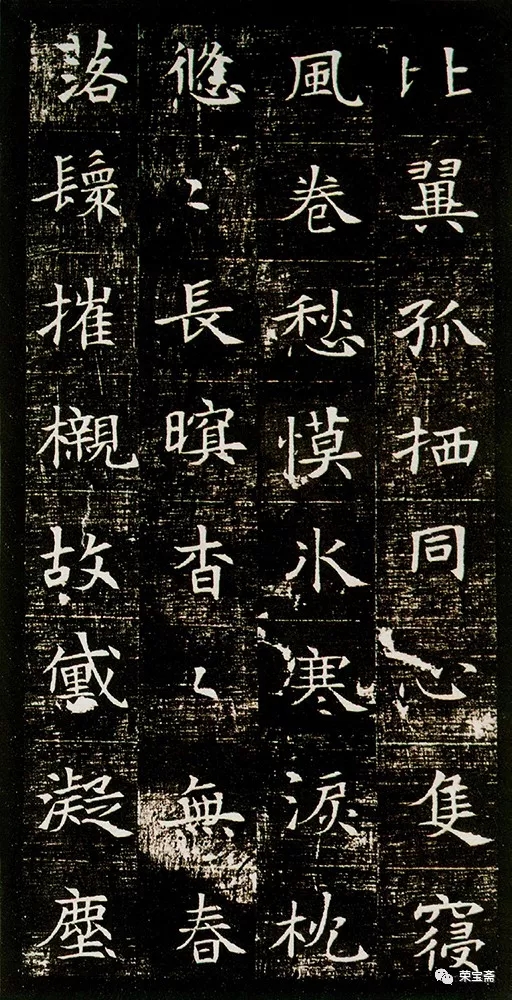 比翼孤栖同心隻寢
風卷愁慔氷寒淚枕
悠〻長暝杳〻無春
落鬟摧櫬故黛凝塵
荣宝斋